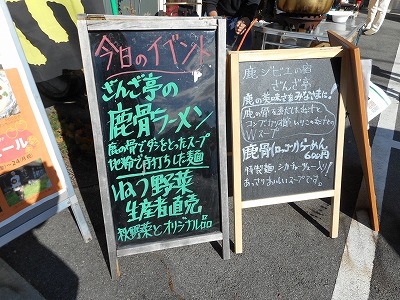 今日のイベント
ざんざ亭の
鹿骨ラーメン
鹿の骨でダシをとったスープ
地粉で手打ちした麺
いなつ野菜
生産者直売
秋野菜とオリジナル品
鹿ジビエの宿
ざんざ亭
鹿の美味さをみなさまに!
鹿の骨を煮だした
Wスープ
鹿骨(ロッコツ)らーめん
600円
特製麺、シカチャーシュー入り!
あっさりおいしいスープです。
ール